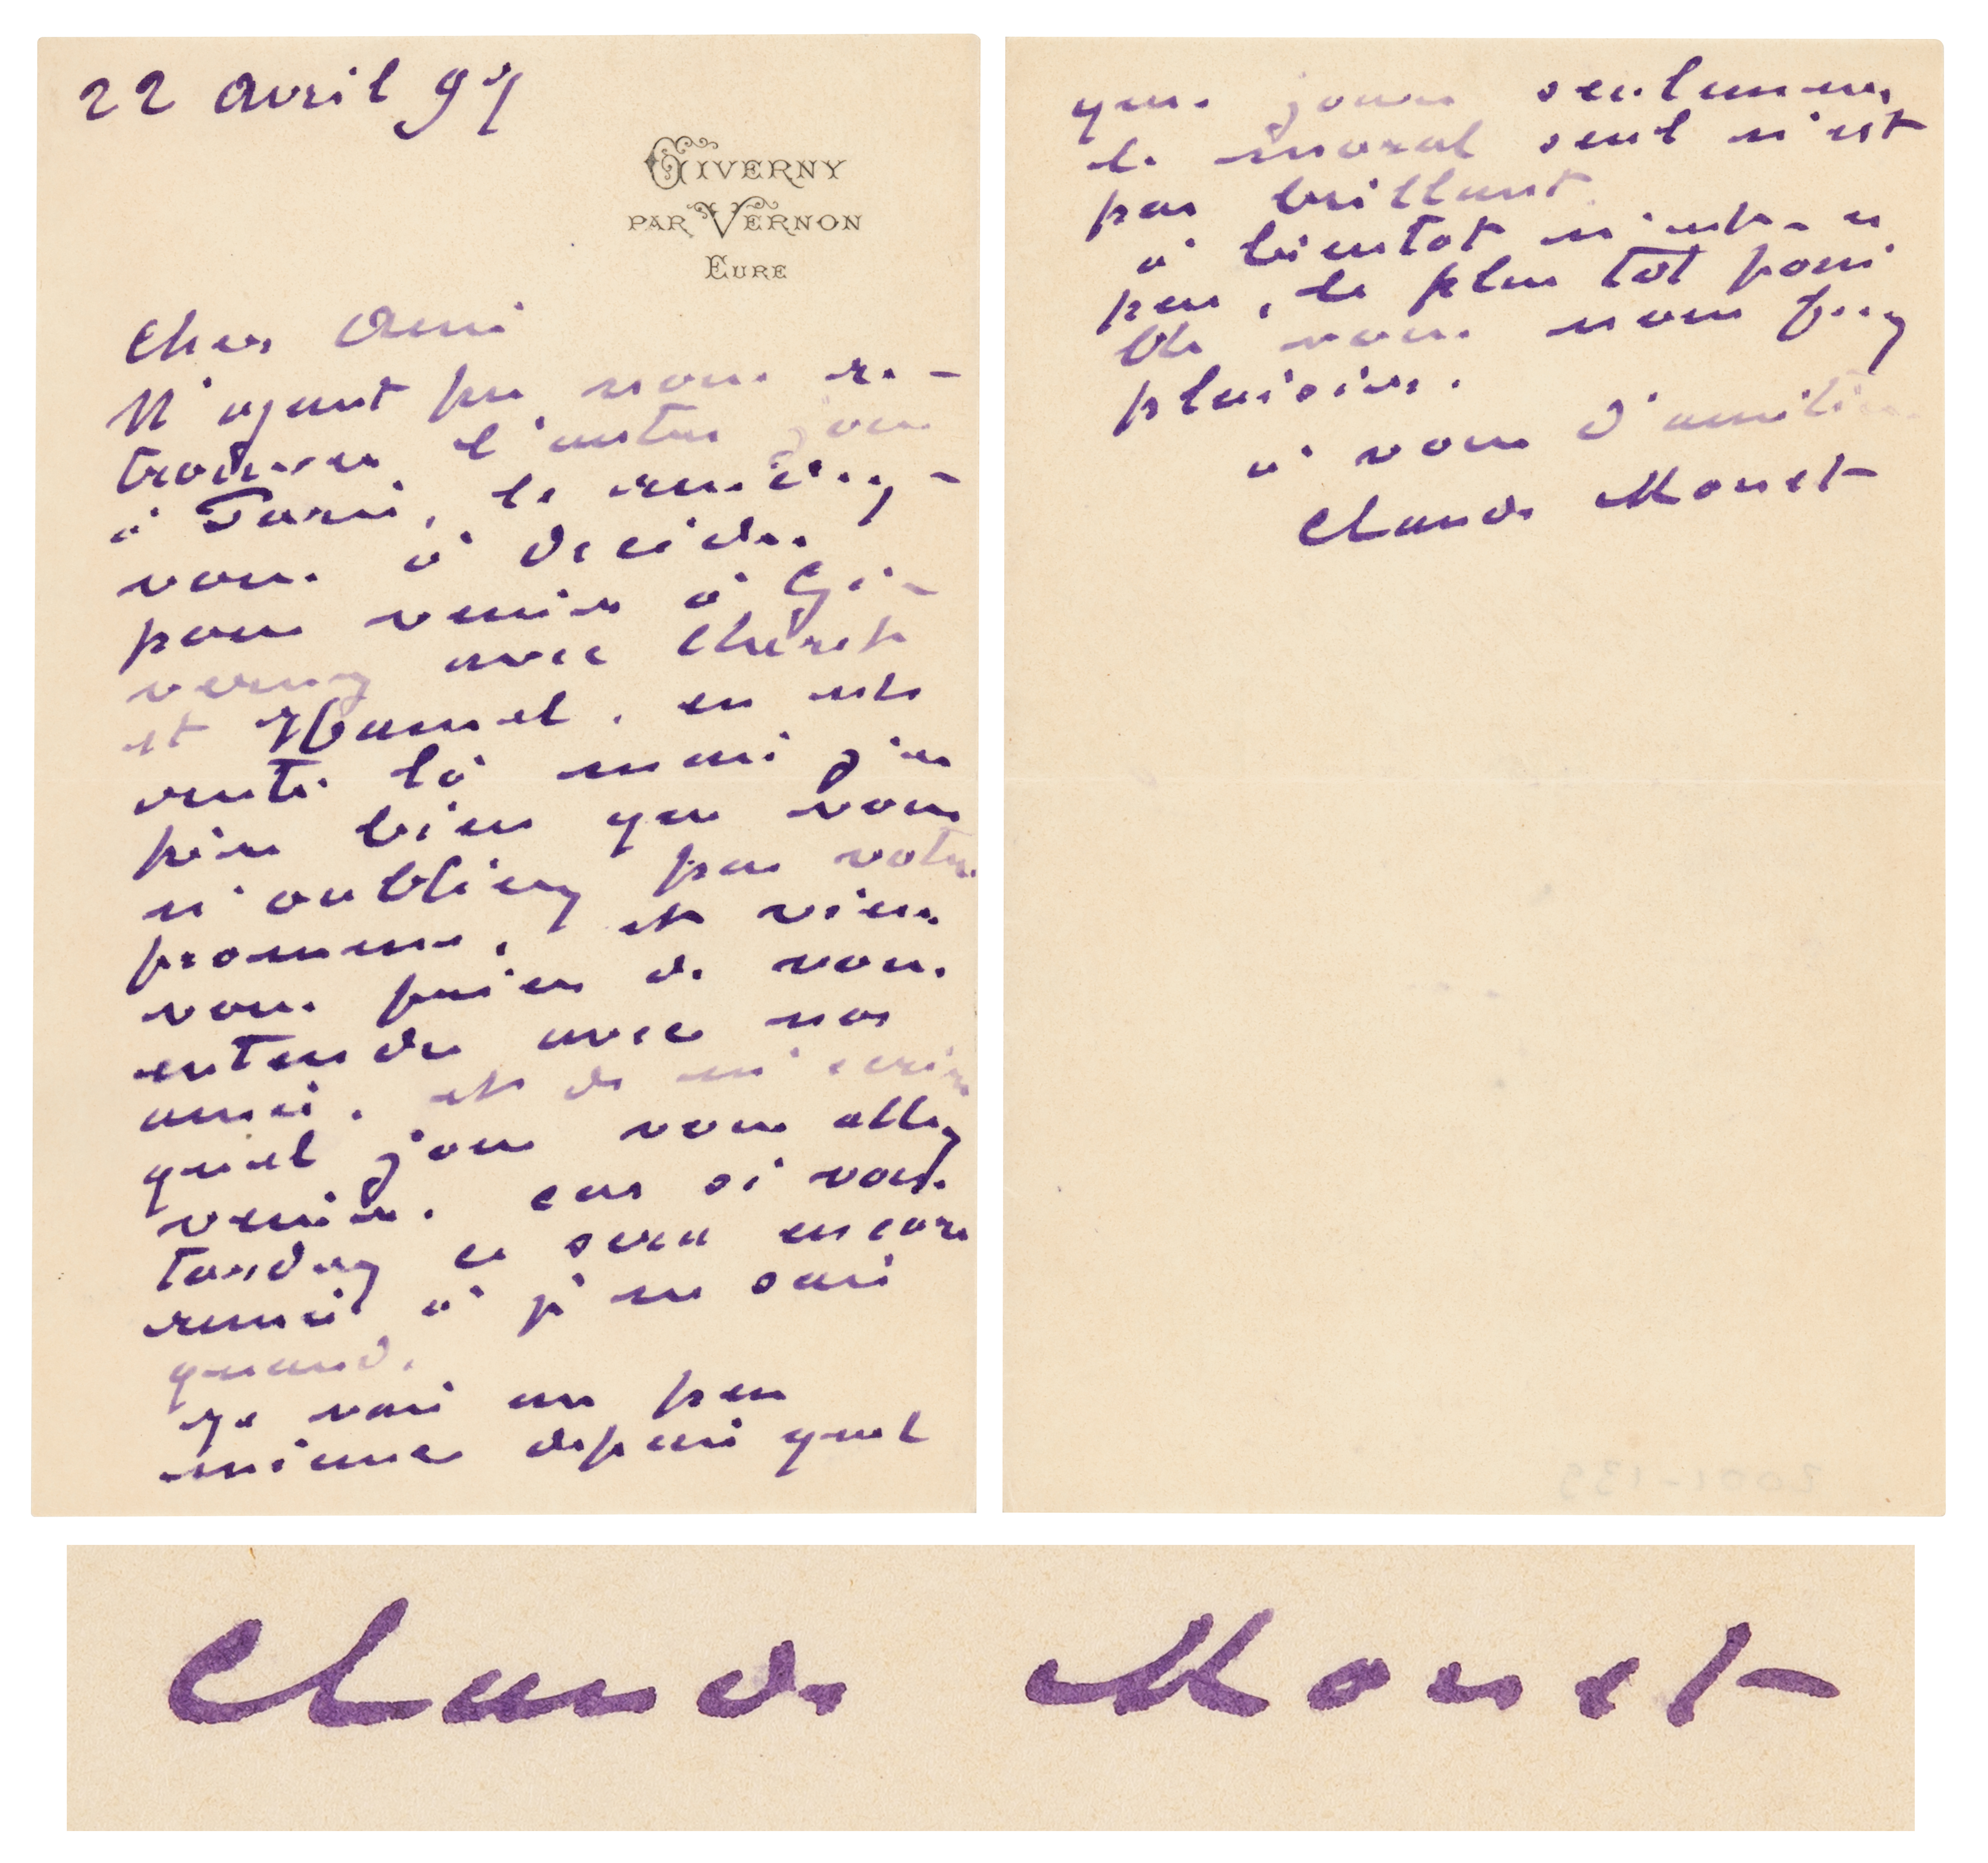 22 avril 97
GIVERNY
PAR VERNON
EURE
Cher Ami
N'ayant pu vous re-
trouver l'autre jour
à Paris, le rendez-
vous à décider
pour venir à Gi-
verny avec Chéret
et Hamel, en resta
là mais j'es
père bien que vous
n'oubliez pas votre
promesse, et viens
vous prier de vous
entendre avec nos
amis, et de m'écrire
quel jour vous allez
venir, car si vous
tardez ce sera encore
remis à je ne sais
quand.
Je vais un peu
mieux depuis quel
ques jours seulement
le moral seul n'est
pas brillant.
à bientôt n'est-ce
pas, le plus tôt possi
ble vous nous ferez
plaisir.
à vous d'amitié
Claude Monet
3001-133
Claude Monet